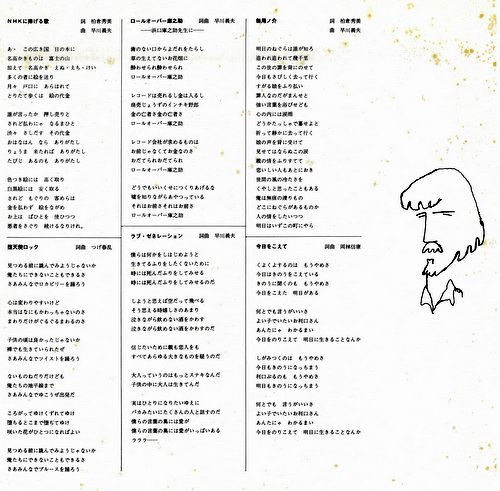 NHKに捧げる歌
詞 柏倉秀美
曲 早川義夫
あゝ この広き国 日の本に
名高かきものは 富士の山
加えて 名高かき えぬ・えち・けい
多くの者に絵を送り
月々 戸口に あらはれて
とりたて歩くは 絵の代金
誰が言ったか 押し売りと
されど払わにゃ なるまひと
渋々 さしだす その代金
おはなはん なら ありがたし
りょうま 来たれば ありがたし
たびじ あるのも ありがたし
色つき絵には 高く取り
白黒絵には 安く取る
されど もぐりの 客めらは
金を払わず 絵をながめ
お上は ばひとを 使ひつつ
悪者をさぐり 続けるなりけれ。
堕天使ロック
詞曲 つげ春乱
見つめる前に跳んでみようじゃないか
俺たちにできないこともできるさ
さあみんなでロカビリーを踊ろう
心は変わりやすいけど
本当はなにもかわっちゃないのさ
まわりだけがぐるぐるまわるのさ
子供の頃は良かったじゃないか
裸でも生きていられたぜ
さあみんなでツイストを踊ろう
ないものねだりだけども
俺たちの地平線まで
さあみんなでゆこうぜ出発だ
ころがってゆけくずれてゆけ
堕ちるとこまで堕ちてゆけ
咲いた花がひとつになればよい
見つめる前に跳んでみようじゃないか
俺たちにできないこともできるさ
さあみんなでブルースを踊ろう
ロールオーバー庫之助
詞曲 早川義夫
——浜口庫之助先生に——
歯のない口からよだれをたらし
草の生えてないお花畑に
酔わせられ酔わせられ
ロールオーバー庫之助
レコードは売れるし金は入るし
商売じょうずのインチキ野郎
金の亡者さ金の亡者さ
ロールオーバー庫之助
レコード会社が求めるものは
お前じゃなくてお金なのさ
おだてられおだてられ
ロールオーバー庫之助
どうでもいいくせにつくりあげるな
嘘を知りながらあやつっている
それはお前さそれはお前さ
ロールオーバー庫之助
ラブ・ゼネレーション
詞曲 早川義夫
僕らは何かをしはじめようと
生きてるふりをしたくないために
時には死んだふりをしてみせる
時には死んだふりをしてみせるのだ
しようと思えば空だって飛べる
そう思える時嬉しさのあまり
泣きながら飲めない酒をかわす
泣きながら飲めない酒をかわすのだ
信じたいために親も恋人をも
すべてあらゆる大きなものを疑うのだ
大人っていうのはもっとステキなんだ
子供の中に大人は生きてんだ
実はひとりになりたいゆえに
バカみたいにたくさんの人と話すのだ
僕らの言葉の奥には愛が
僕らの言葉の奥には愛がいっぱいある
ラララ——
無用ノ介
詞 柏倉秀美
曲 早川義夫
明日のねぐらは誰が知ろ
追われ追われて幾千里
この世の罪を背にのせて
今日もさびしく去って行く
すがる娘をふり払い
罪人なのだがまんせと
強い言葉を浴びせども
心の内には涙雨
どうかたっしゃで暮せよと
祈って静かに去って行く
娘の声を背に受けて
見せてはならぬこの涙
親の情をふりすてて
恋しい人もあとにおき
世間の風の冷たさを
くやしと思ったこともある
俺は無宿の渡りもの
どこにねぐらがあるものか
人の情をしたいつつ
明日はいずこの町にやら
今日をこえて
詞曲 岡林信康
くよくよするのは もうやめさ
今日はきのうをこえている
きのうに聞くのも もうやめさ
今日をこえた 明日がある
何とでも言うがいいさ
よい子でいたいお利口さん
あんたにゃ わかるまい
今日をのりこえて 明日に生きることなんか
しがみつくのは もうやめさ
今日もきのうになっちまう
利口ぶるのも もうやめさ
明日もきのうになっちまう
何とでも 言うがいいさ
よい子でいたいお利口さん
あんたにゃ わかるまい
今日をのりこえて 明日に生きることなんか